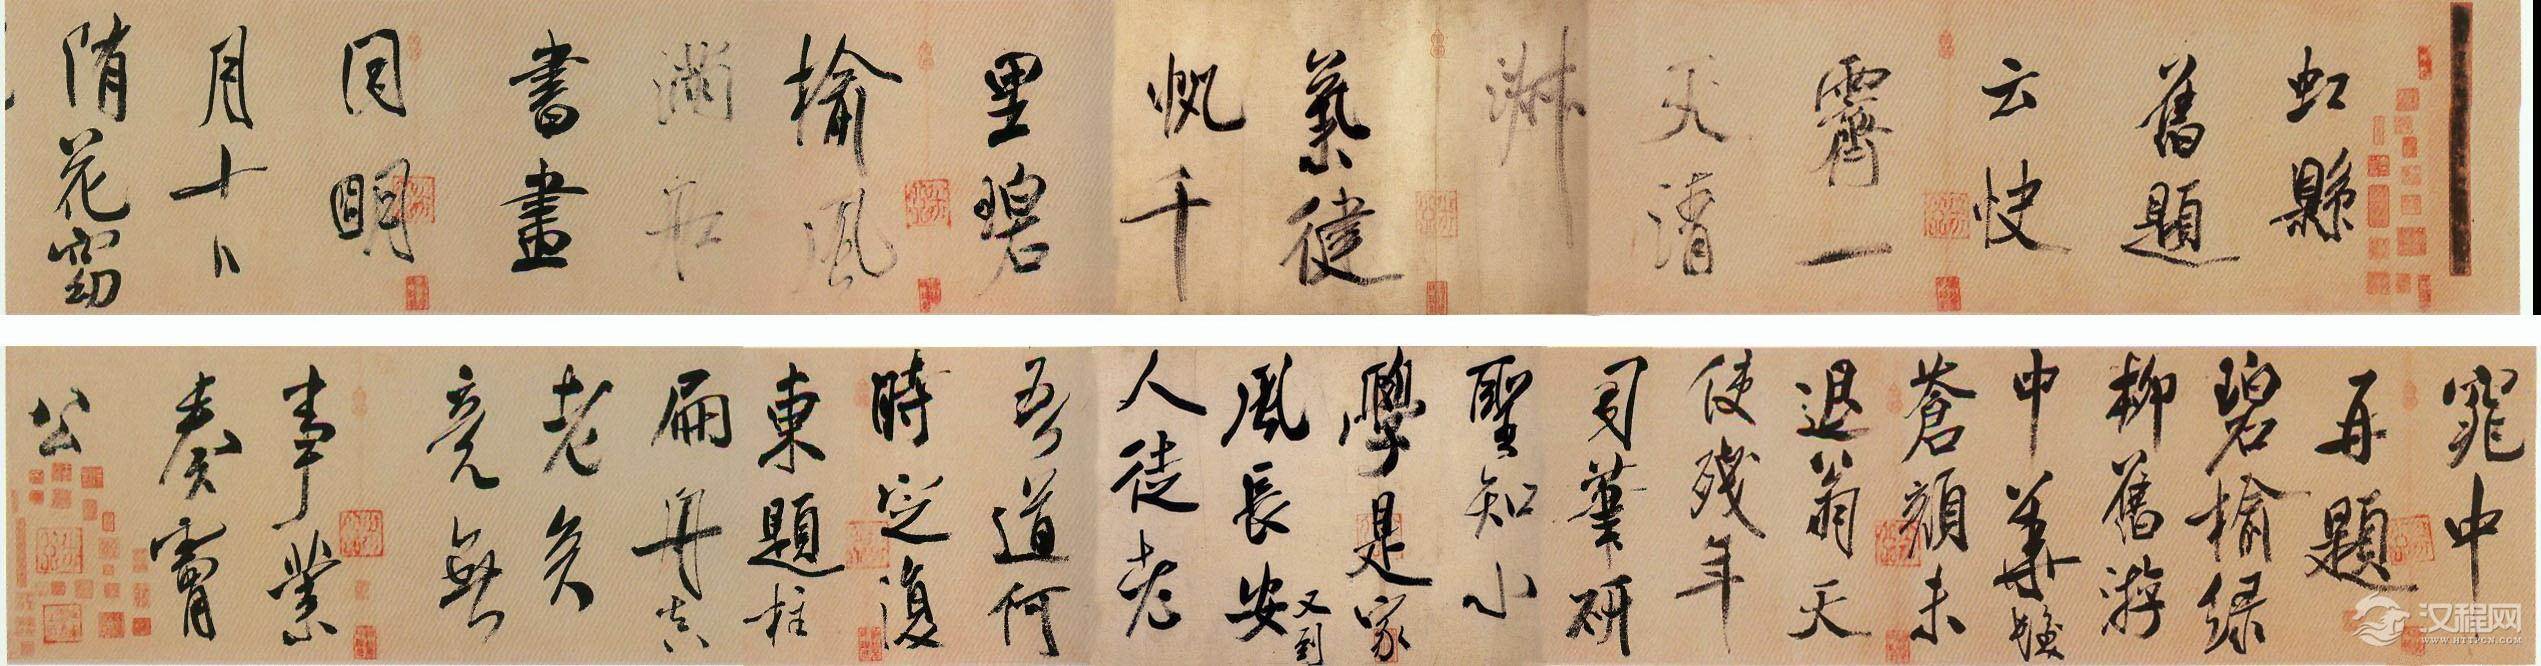 虹縣
舊題
云快
霽一
天清
淑
氣健
帆千
里碧
榆風
滿舡
書畫
同明
月十日
隋花窈
窕中
再題
碧榆綠
柳舊游
中華髮
蒼顏未
退翁天
使殘年
司筆研
聖知小
學是家
風長安又到
人徒老
吾道何
時定復
東題柱
扁舟真
老矣
竟無
事業
奏膚
公
汉程网
WWW.HTTPCN.COM